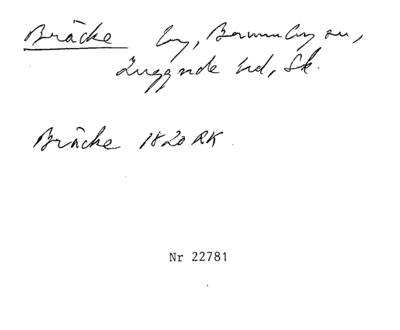 Bräcke by, Brunnby sn,
Luggude hd, Sk.
Bräcke 1820 RK
Nr 22781